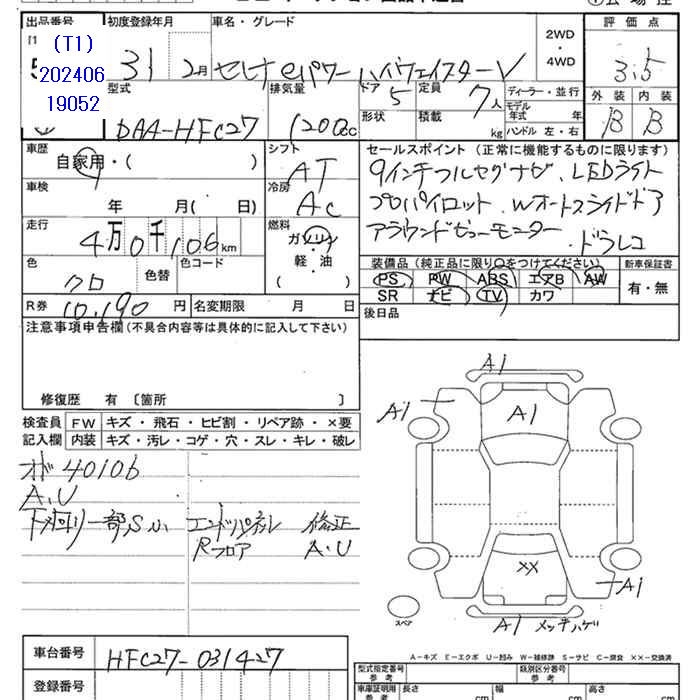 出品番号 初度登録年月 車名・グレード 評価点
(T1)
202406
19052
31 2月 セレナ eパワー ハイウェイスターV 2WD・4WD 3.5
型式 排気量 ドア 5 定員 7人 ディーラー・並行 外装 内装
DAA-HFC27 1200cc 形状 積載 kg モデル年式 年 ハンドル 左・右 B B
車歴 自家用・( ) シフト AT セールスポイント (正常に機能するものに限ります)
9インチフルセグナビ、LEDライト
車検 年 月( 日) 冷房 AC プロパイロット、Wオートスライドドア
走行 4万0千106km 燃料 ガソリン 軽・油 ( ) アラウンドビューモニター、ドラレコ
色 クロ 色替 色コード 装備品 (純正品に限り○をつけてください) 新車保証書
PS PW ABS エアB AW 有・無
SR ナビ TV カワ
R券 10,190 円 名変期限 月 日 後日品
注意事項申告欄 (不具合内容等は具体的に記入して下さい)
修復歴 有 〔箇所 〕
検査員記入欄 FW キズ・飛石・ヒビ割・リペア跡・×要
内装 キズ・汚レ・コゲ・穴・スレ・キレ・破レ
オド40106
A.U
下メ回リ一部S有 エンドパネル 修正
Rフロア A.U
A1
A1 A1
XX
A1
スペア
A1 メッキハゲ
A-キズ E-エクボ U-凹み W-補修跡 S-サビ C-腐食 ××-交換済
車台番号 HFC27-031427
型式指定番号 参考 類別区分番号 参考
登録番号 車庫証明用 参考 長さ cm 幅 cm 高さ cm